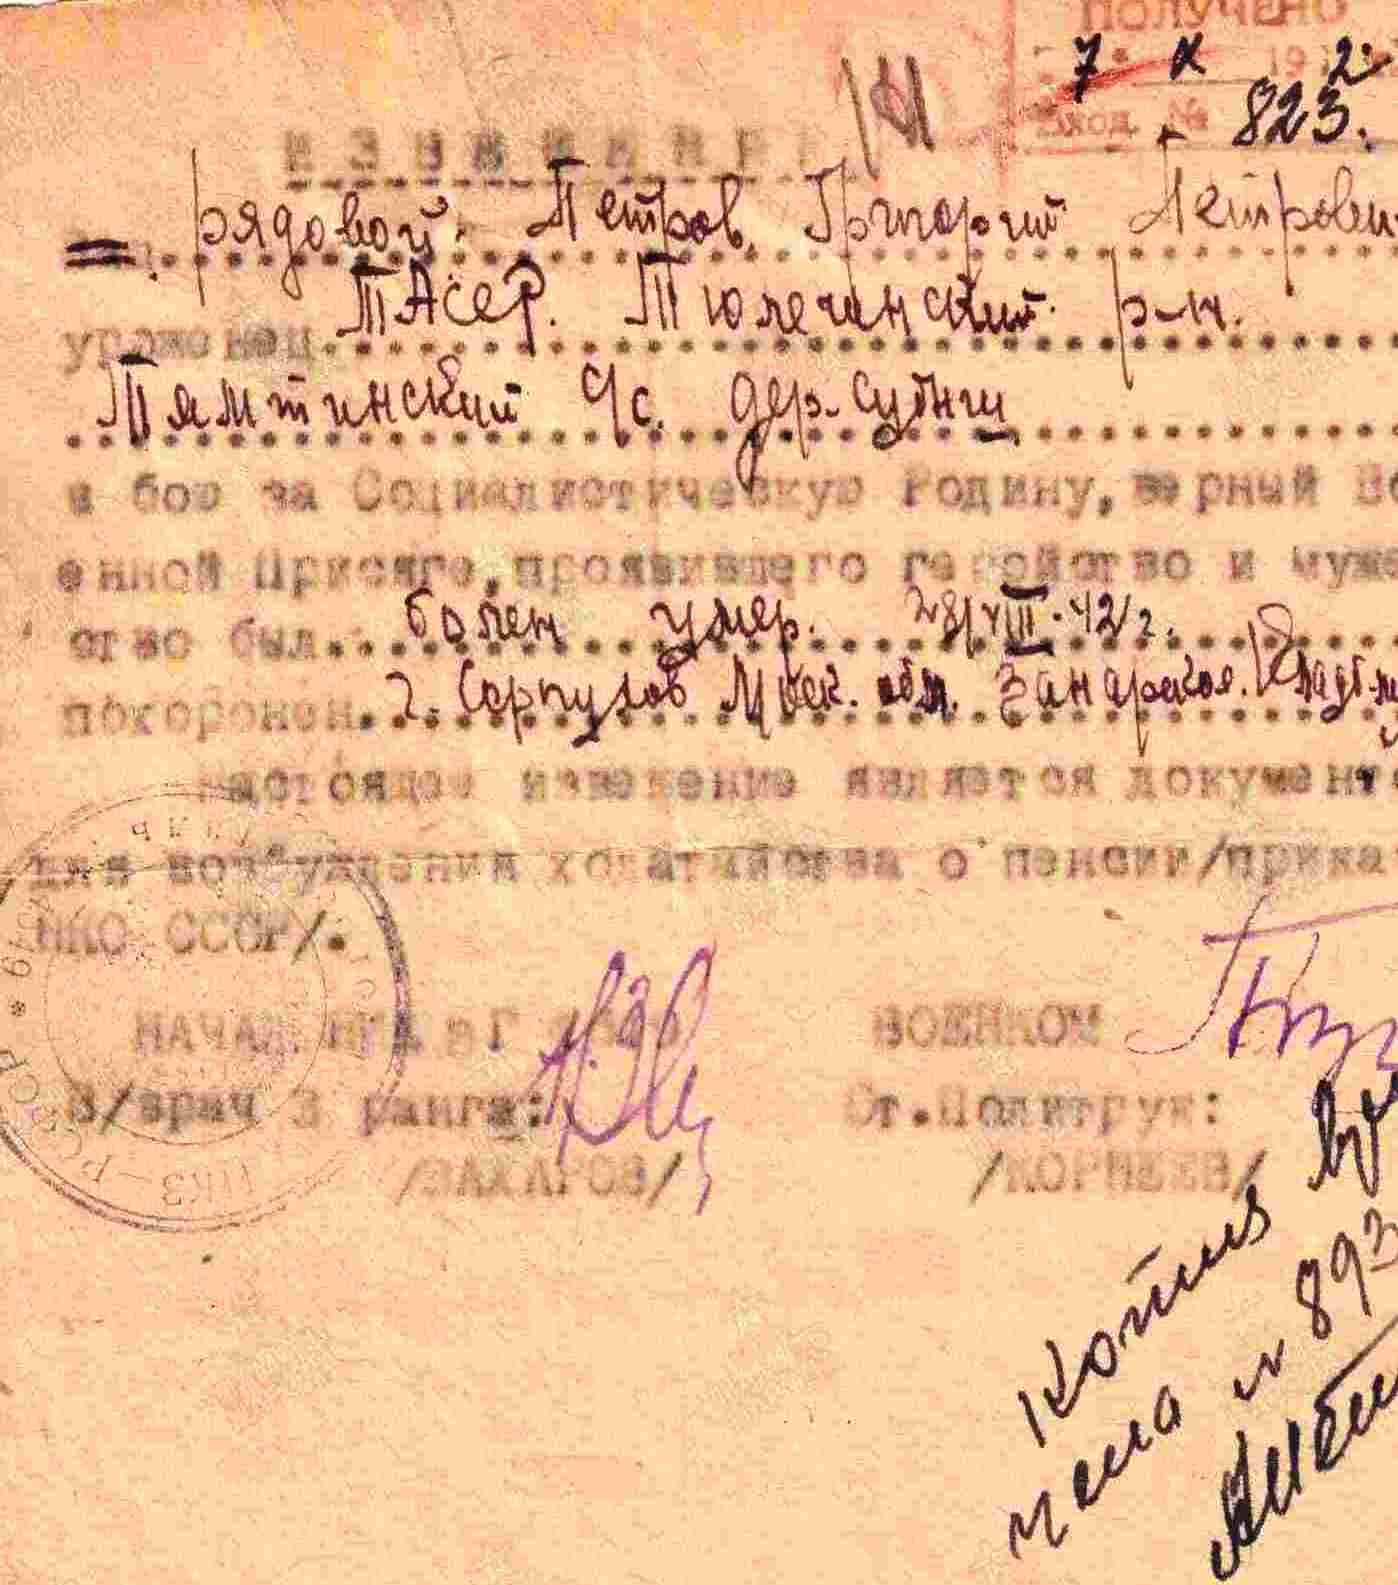 ПОЛУЧЕНО
7 X 19 2
Вход. № 823.
ИЗВЕЩЕНИЕ
рядовой. Петров Григорий Петрови
уроженец ТАССР. Тюлечинский р-н.
Тямтинский с/с. дер. Субыш
в бою за Социалистическую Родину, верный Во
енной Присяге, проявившего геройство и муже
ство был болен умер. 28/VIII-42 г.
похоронен г. Серпухов Моск. обл. Занарское Кладб.
Настоящее извещение является документ
для возбуждения ходатайства о пенсии/приказ
НКО СССР/.
НАЧАЛ ВОЕНКОМ
В/врач 3 ранга: Ст.Политрук:
/ЗАХАРОВ/ /КОРНЕЕВ/
НКЗ-РСФСР
Копия
№ 893